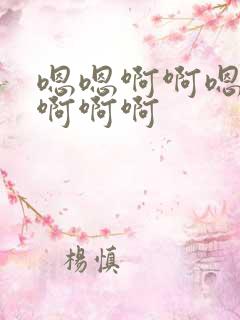 嗯嗯啊啊嗯
啊啊啊
楊慎